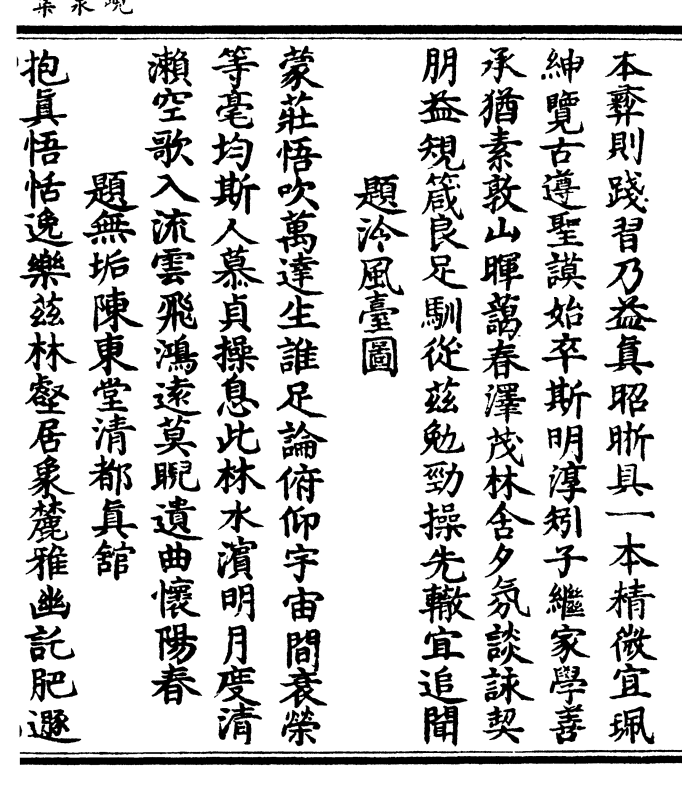 本彝則踐習乃益真昭晰具一本精微宜珮
紳覽古遵聖謨始卒斯明淳矧子繼家學善
承猶素敦山暉藹春澤茂林舍夕氛談詠契
朋益規箴良足馴從茲勉勁操先轍宜追聞
題泠風臺圖
蒙莊悟吹萬達生誰足論俯仰宇宙間衰榮
等毫均斯人慕貞操息此林水濱明月度清
瀨空歌入流雲飛鴻遠莫睨遺曲懷陽春
題無垢陳東堂清都真舘
抱真悟恬逸樂茲林壑居象麓雅幽託肥遯